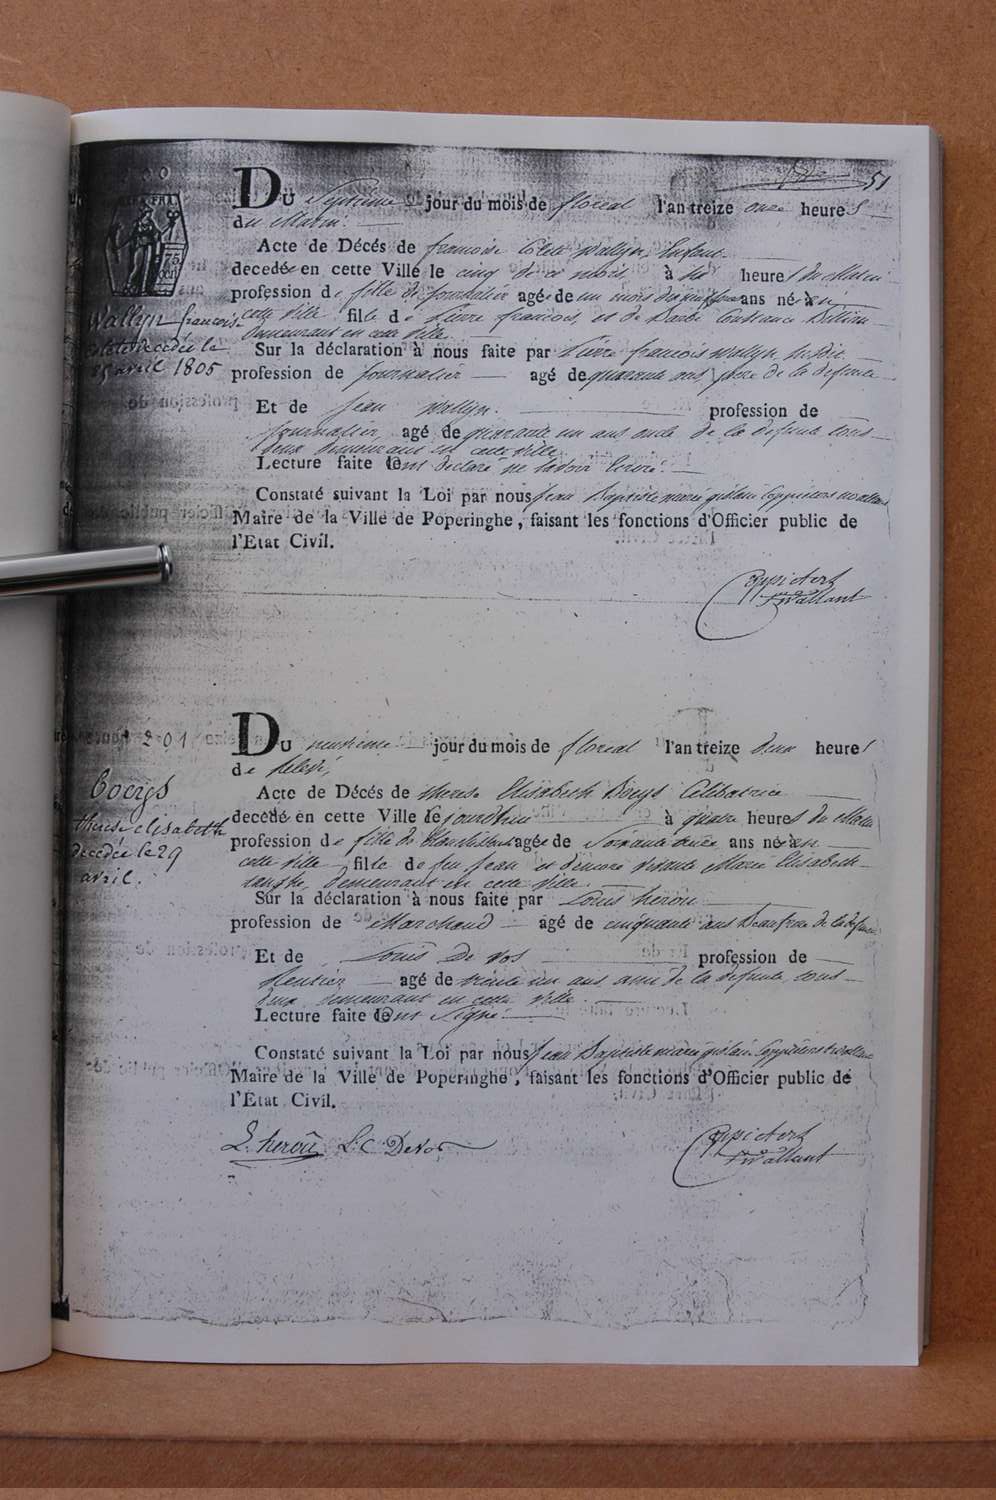 51
200
75
Du Septieme jour du mois de floreal l'an treize onze heures
du Matin.
Acte de Décés de francoise Colete Wallyn Enfant
decedée en cette Ville le cinq de ce mois à six heures du Matin
profession de fille de journalier agé de un mois ans né en
cette ville fille de Pierre francois, et de Barbe Constance
demeurant en cette ville.
Wallyn francoise
Colete decedée le
25 avril 1805
Sur la déclaration à nous faite par Pierre francois Wallyn
profession de journalier agé de quarante ans, pere de la defunte
Et de Jean Wallyn. profession de
journalier, agé de quarante un ans oncle de la defunte tous
deux demeurant en cette ville
Lecture faite ont declaré ne savoir Ecrire.
Constaté suivant la Loi par nous Jean Baptiste marie gislain
Maire de la Ville de Poperinghe, faisant les fonctions d'Officier public de
l'Etat Civil.
201
Du neuvieme jour du mois de floreal l'an treize deux heures
de Relevé,
Boeijs
therese elisabeth
decedée le 29
avril.
Acte de Décés de therese Elisabeth Boeys Celibatrice
decédée en cette Ville le jourdhui à quatre heures du Matin
profession de fille de agée de Soixante ans née en
cette ville fille de feu Jean et d'encore vivante Marie Elisabeth
demeurant en cette ville.
Sur la déclaration à nous faite par Louis herou
profession de Marchand agé de cinquante ans Beaufrere de la defunte
Et de Louis De vos profession de
Rentier agé de trente un ans ami de la defunte tous
deux demeurant en cette ville.
Lecture faite ont Signé.
Constaté suivant la Loi par nous Jean Baptiste marie gislain
Maire de la Ville de Poperinghe, faisant les fonctions d'Officier public de
l'Etat Civil.
L. herou L: C Devos